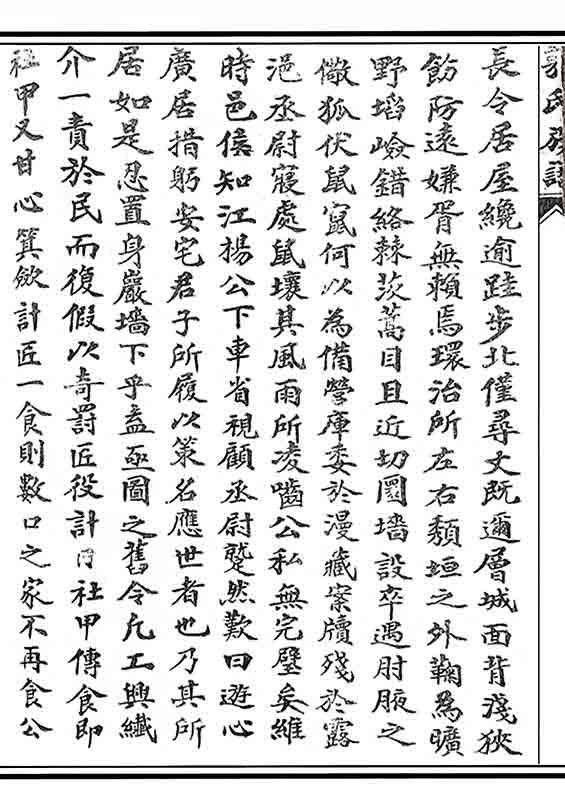 郭氏族譜
長令居屋纔逾跬步北僅尋丈既邇層城面背淺狹
飭防遠嫌胥無賴焉環治所左右頽垣之外鞠為曠
野塪嶮錯絡棘茨蒿目且近切圜墻設卒遇肘腋之
儆狐伏鼠竄何以為備營庫委於漫藏案牘殘於露
浥丞尉寢處鼠壤其風雨所凌嚙公私無完壁矣維
時邑侯知江楊公下車省視顧丞尉蹙然歎曰遊心
廣居措躬安宅君子所履以策名應世者也乃其所
居如是忍置身巖墻下乎盍亟圖之舊令凡工興纖
介一責於民而復假以奇罰匠役計日社甲傳食即
社甲又甘心箕斂計匠一食則數口之家不再食公